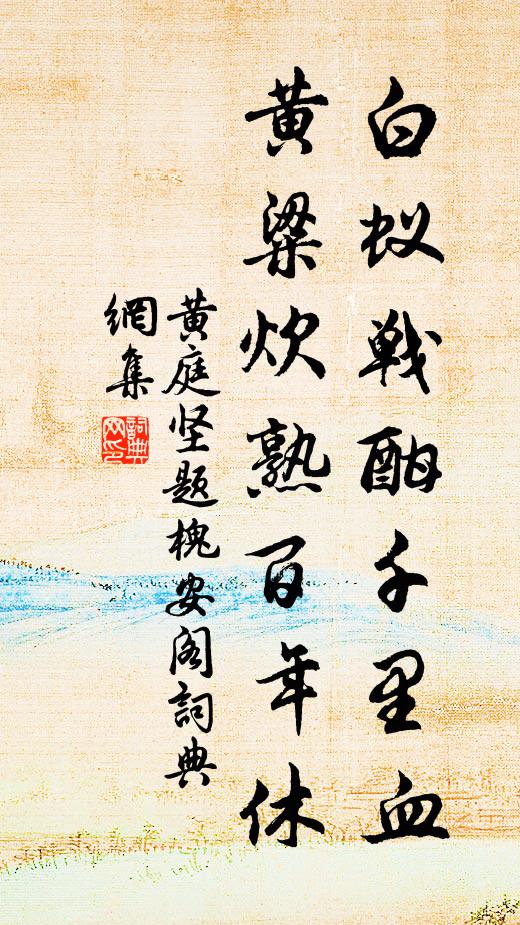 白蚁戦酣千里血
黄粱炊熟百年休
黄庭坚题槐安阁詞典
網集
詞典
网印